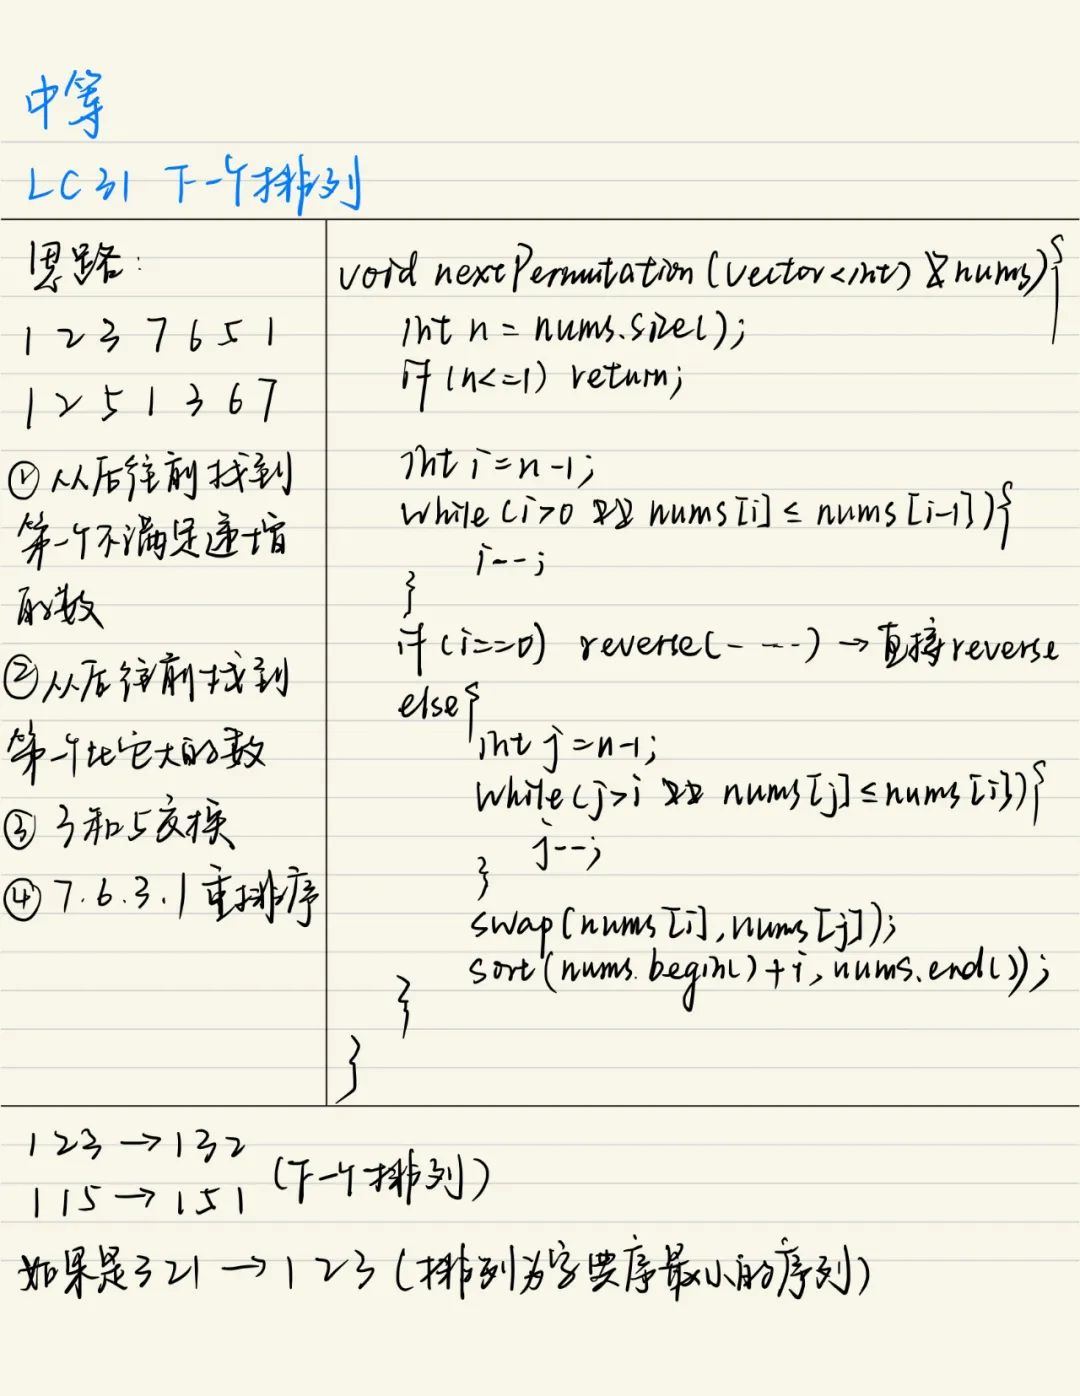 中等
LC31 下一个排列
思路:
1 2 3 7 6 5 1
1 2 5 1 3 6 7
① 从后往前找到
第一个不满足递增
的数
② 从后往前找到
第一个比它大的数
③ 3和5交换
④ 7.6.3.1重排序
void nextPermutation(vector<int> &nums){
int n = nums.size();
if (n<=1) return;
int i = n-1;
while (i>0 && nums[i] ≤ nums[i-1]){
i--;
}
if (i==0) reverse(----) → 直接reverse
else{
int j = n-1;
while (j>i && nums[j] ≤ nums[i]){
j--;
}
swap(nums[i], nums[j]);
sort(nums.begin()+i, nums.end());
}
}
123 → 132
115 → 151 (下一个排列)
如果是321 → 123 (排列为字典序最小的序列)